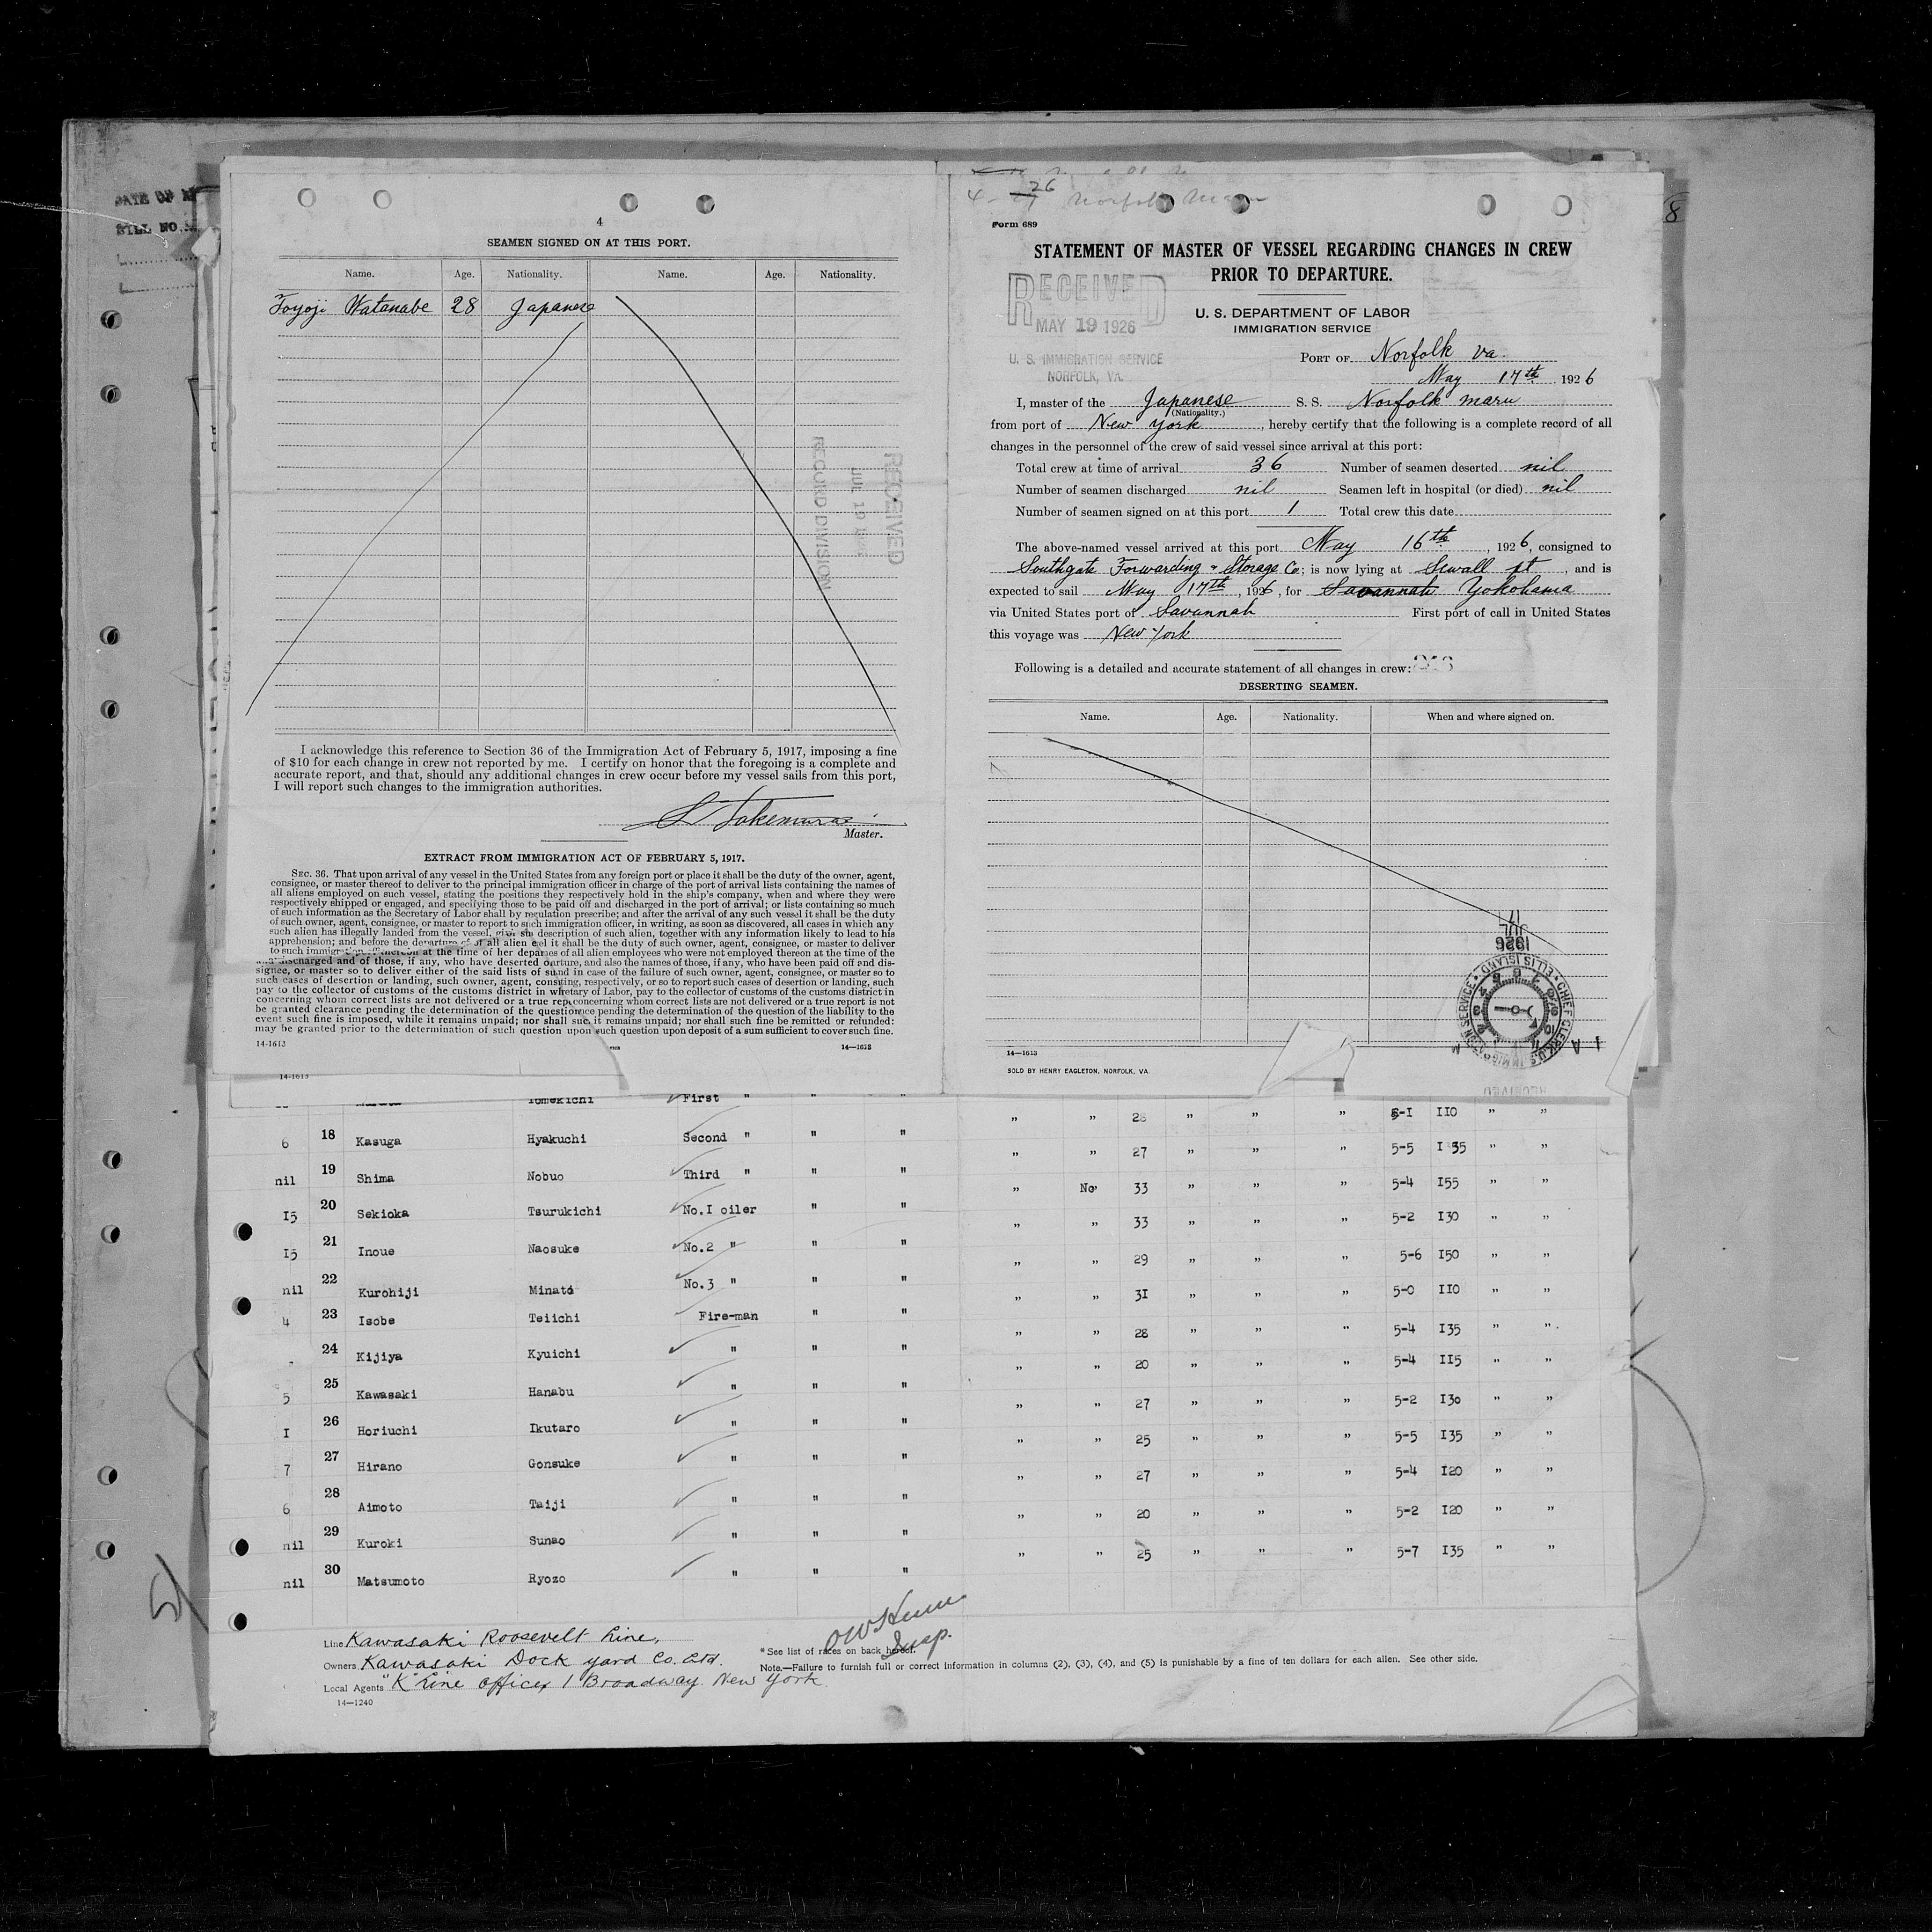 4
SEAMEN SIGNED ON AT THIS PORT.
Name. Age. Nationality. Name. Age. Nationality.
Toyoji Watanabe 28 Japanese
RECEIVED
JUL 19
RECORD DIVISION
I acknowledge this reference to Section 36 of the Immigration Act of February 5, 1917, imposing a fine
of $10 for each change in crew not reported by me. I certify on honor that the foregoing is a complete and
accurate report, and that, should any additional changes in crew occur before my vessel sails from this port,
I will report such changes to the immigration authorities.
Master.
EXTRACT FROM IMMIGRATION ACT OF FEBRUARY 5, 1917.
SEC. 36. That upon arrival of any vessel in the United States from any foreign port or place it shall be the duty of the owner, agent,
consignee, or master thereof to deliver to the principal immigration officer in charge of the port of arrival lists containing the names of
all aliens employed on such vessel, stating the positions they respectively hold in the ship's company, when and where they were
respectively shipped or engaged, and specifying those to be paid off and discharged in the port of arrival; or lists containing so much
of such information as the Secretary of Labor shall by regulation prescribe; and after the arrival of any such vessel it shall be the duty
of such owner, agent, consignee, or master to report to such immigration officer, in writing, as soon as discovered, all cases in which any
such alien has illegally landed from the vessel, description of such alien, together with any information likely to lead to his
apprehension; and before the departure of all alien el it shall be the duty of such owner, agent, consignee, or master to deliver
to such thereon at the time of her depar es of all alien employees who were not employed thereon at the time of the
discharged and of those, if any, who have deserted o arture, and also the names of those, if any, who have been paid off and dis-
signee, or master so to deliver either of the said lists of su nd in case of the failure of such owner, agent, consignee, or master so to
such cases of desertion or landing, such owner, agent, cons ting, respectively, or so to report such cases of desertion or landing, such
pay to the collector of customs of the customs district in wh etary of Labor, pay to the collector of customs of the customs district in
concerning whom correct lists are not delivered or a true rep concerning whom correct lists are not delivered or a true report is not
be granted clearance pending the determination of the question nce pending the determination of the question of the liability to the
event such fine is imposed, while it remains unpaid; nor shall suc it remains unpaid; nor shall such fine be remitted or refunded:
may be granted prior to the determination of such question upon such question upon deposit of a sum sufficient to cover such fine.
14-1613 14—1613
14-1613
26
Norfolk Maru
Form 689
8
STATEMENT OF MASTER OF VESSEL REGARDING CHANGES IN CREW
PRIOR TO DEPARTURE.
RECEIVED
MAY 19 1926
U. S. IMMIGRATION SERVICE
NORFOLK, VA.
U. S. DEPARTMENT OF LABOR
IMMIGRATION SERVICE
PORT OF Norfolk va.
May 17th, 1926
I, master of the Japanese S. S. Norfolk maru
(Nationality.)
from port of New York, hereby certify that the following is a complete record of all
changes in the personnel of the crew of said vessel since arrival at this port:
Total crew at time of arrival 36 Number of seamen deserted nil
Number of seamen discharged nil Seamen left in hospital (or died) nil
Number of seamen signed on at this port 1 Total crew this date
The above-named vessel arrived at this port May 16th, 1926, consigned to
Southgate Forwarding & Storage Co; is now lying at Sewall pt, and is
expected to sail May 17th, 1926, for Savannah Yokohama
via United States port of Savannah First port of call in United States
this voyage was New York
Following is a detailed and accurate statement of all changes in crew:
DESERTING SEAMEN.
Name. Age. Nationality. When and where signed on.
17
JUL
1926
CHIEF CLERK U.S. IMMIGRATION SERVICE • ELLIS ISLAND •
14—1613
SOLD BY HENRY EAGLETON, NORFOLK, VA.
DATE OF
BILL NO.
Tomekichi First " " " " " 28 " " " 5-I II0 " "
6 18 Kasuga Hyakuchi Second " " " " " 27 " " " 5-5 I35 " "
nil 19 Shima Nobuo Third " " " " No 33 " " " 5-4 I55 " "
I5 20 Sekioka Tsurukichi No.I oiler " " " " 33 " " " 5-2 I30 " "
I5 21 Inoue Naosuke No.2 " " " " " 29 " " " 5-6 I50 " "
nil 22 Kurohiji Minato No.3 " " " " " 3I " " " 5-0 II0 " "
4 23 Isobe Teiichi Fire-man " " " " 28 " " " 5-4 I35 " "
24 Kijiya Kyuichi " " " " " 20 " " " 5-4 II5 " "
5 25 Kawasaki Hanabu " " " " " 27 " " " 5-2 I30 " "
I 26 Horiuchi Ikutaro " " " " " 25 " " " 5-5 I35 " "
7 27 Hirano Gonsuke " " " " " 27 " " " 5-4 I20 " "
6 28 Aimoto Taiji " " " " " 20 " " " 5-2 I20 " "
nil 29 Kuroki Sunao " " " " " 25 " " " 5-7 I35 " "
nil 30 Matsumoto Ryozo " " "
Insp.
Line Kawasaki Roosevelt Line,
Owners Kawasaki Dock yard Co. Ltd.
Local Agents "K" Line office, 1 Broadway New York
14—1240
* See list of races on back hereof.
Note.—Failure to furnish full or correct information in columns (2), (3), (4), and (5) is punishable by a fine of ten dollars for each alien. See other side.